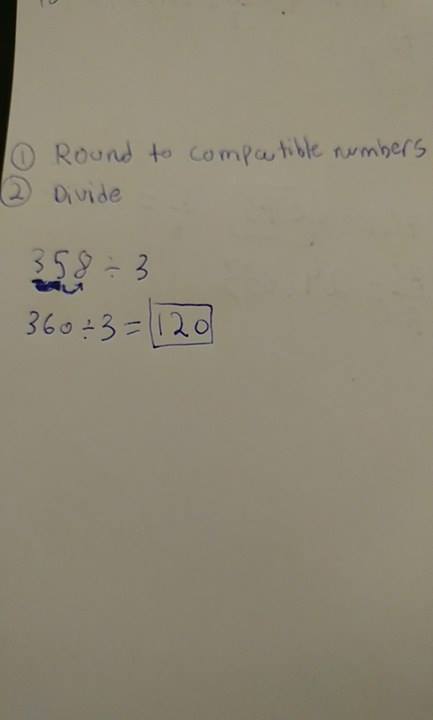 ① Round to compatible numbers
② Divide
358 ÷ 3
360 ÷ 3 = 120